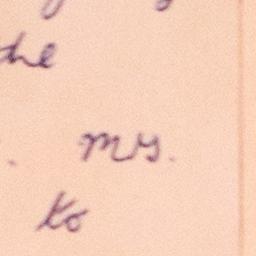 the
my.
to